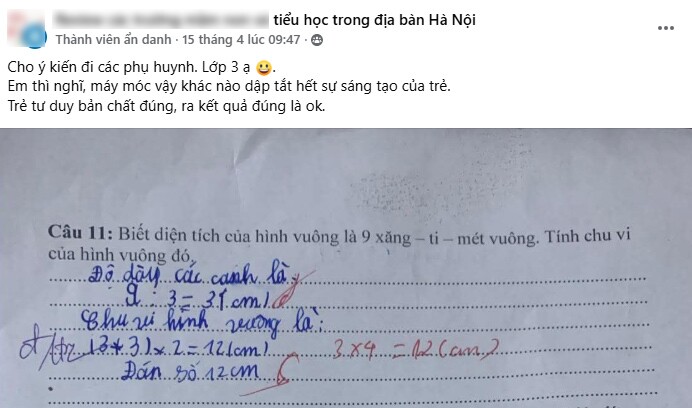 tiểu học trong địa bàn Hà Nội
Thành viên ẩn danh · 15 tháng 4 lúc 09:47 ·
Cho ý kiến đi các phụ huynh. Lớp 3 ạ 😀.
Em thì nghĩ, máy móc vậy khác nào dập tắt hết sự sáng tạo của trẻ.
Trẻ tư duy bản chất đúng, ra kết quả đúng là ok.
Câu 11: Biết diện tích của hình vuông là 9 xăng – ti – mét vuông. Tính chu vi
của hình vuông đó.
Độ dày các canh là
9 : 3 = 3 (cm)
Chu vi hình vuông là:
(3 + 3) x 2 = 12 (cm) 3 x 4 = 12 (cm)
Đán số 12 cm